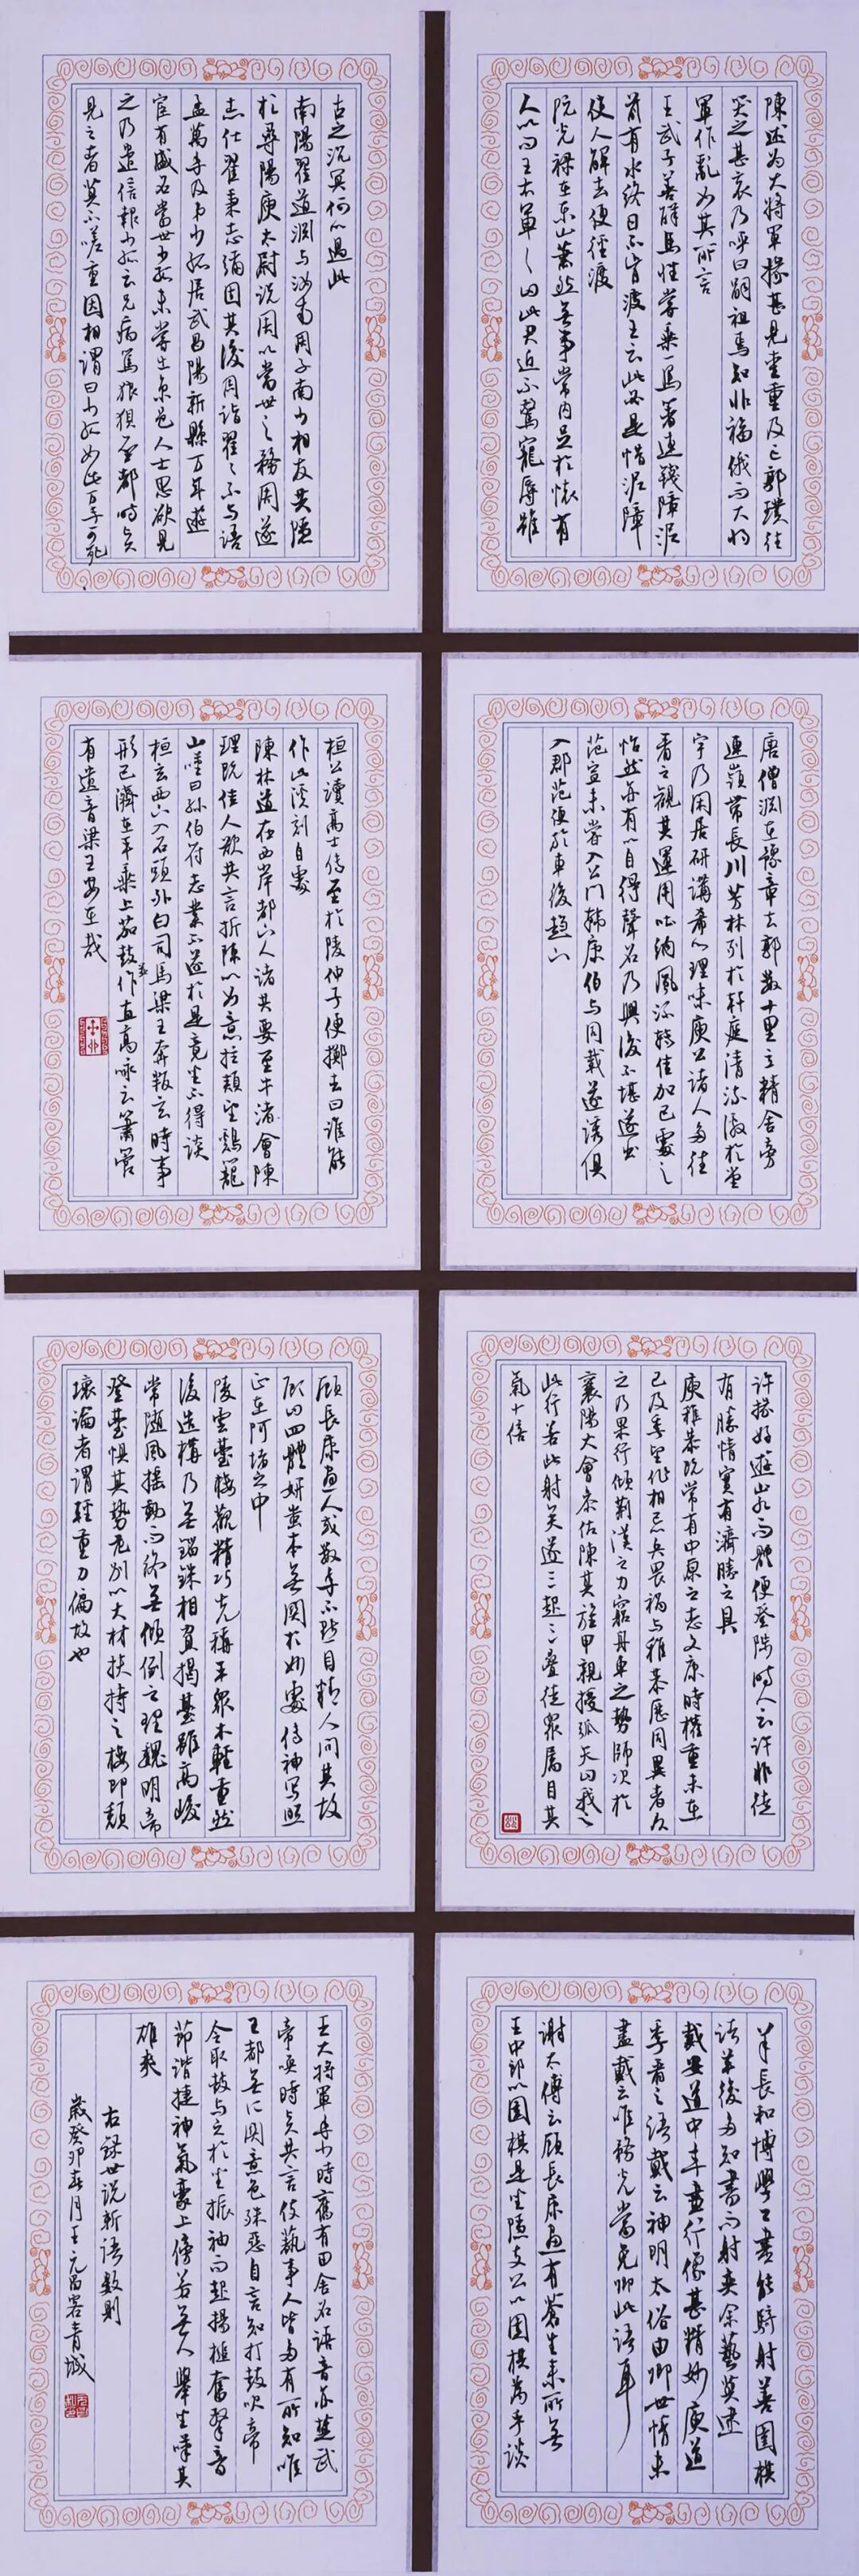 陳述為大將軍掾甚見愛重及亡郭璞往
哭之甚哀乃呼曰嗣祖焉知非福俄而大將
軍作亂如其所言
王武子善解馬性嘗乘一馬著連錢障泥
前有水終日不肯渡王云此必是惜泥障
使人解去便徑渡
阮光祿在東山蕭然無事常內足於懷有
人以問王右軍々曰此君近不驚寵辱雖
古之沉冥何以過此
南陽翟道淵与汝南周子南少相友共隱
於尋陽庾太尉說周以當世之務周遂
志仕翟秉志彌固其後周詣翟々不与語
孟萬年及弟少孤居武昌陽新縣万年遊
宦有盛名當世少孤未嘗出京邑人士思欲見
之乃遣信報少孤云兄病篤狼狽至都時賢
見之者莫不嗟重因相謂曰少孤如此万年可死
唐僧淵在豫章去郭數十里立精舍旁
連嶺帶長川芳林列於軒庭清流激於堂
宇乃閑居研講希心理味庾公諸人多往
看之觀其運用吐納風流轉佳加已處之
怡然亦有以自得聲名乃興後不堪遂出
范宣未嘗入公門韓康伯与同載遂誘俱
入郡范便於車後趨下
桓公讀高士傳至於陵仲子便擲去曰誰能
作此溪刻自處
陳林道在西岸都下人諸共要至牛渚會陳
理既佳人欲共言折陳以如意拄頰望鷄籠
山嘆曰孫伯符志業不遂於是竟坐不得談
桓玄西下入石頭外白司馬梁王奔叛玄時事
形已濟在平乘上茄鼓並作直高咏云簫管
有遺音梁王安在哉
許掾好遊山水而體便登陟時人云許非徒
有勝情實有濟勝之具
庾稚恭既常有中原之志文康時權重未在
己及季堅作相忌兵畏禍与稚恭歷同異者久
之乃果行傾荊漢之力窮舟車之勢師次於
襄陽大會參佐陳其旌甲親授弧矢曰我之
此行若此射矣遂三起三疊徒眾屬目其
氣十倍
顧長康畫人或數年不點目精人問其故
顧曰四體妍蚩本無關於妙處傳神寫照
正在阿堵之中
陵雲臺樓觀精巧先稱平眾木輕重然
後造構乃無錙銖相負揭臺雖高峻
常隨風搖動而終無傾倒之理魏明帝
登臺懼其勢危別以大材扶持之樓即頹
壞論者謂輕重力偏故也
羊長和博學工書能騎射善圍棋
諸羊後多知書而射奕余藝莫逮
戴安道中年畫行像甚精妙庾道
季看之語戴云神明太俗由卿世情未
盡戴云唯務光當免卿此語耳
謝太傅云顧長康畫有蒼生來所無
王中郎以圍棋是坐隱支公以圍棋為手談
王大將軍年少時舊有田舍名語音亦楚武
帝喚時賢共言伎藝事人皆多有所知唯
王都無所關意色殊惡自言知打鼓吹帝
令取鼓与之於坐振袖而起揚槌奮擊音
節諧捷神氣豪上傍若無人舉坐嘆其
雄爽
右錄世說新語數則
歲癸卯春月王元昌客青城